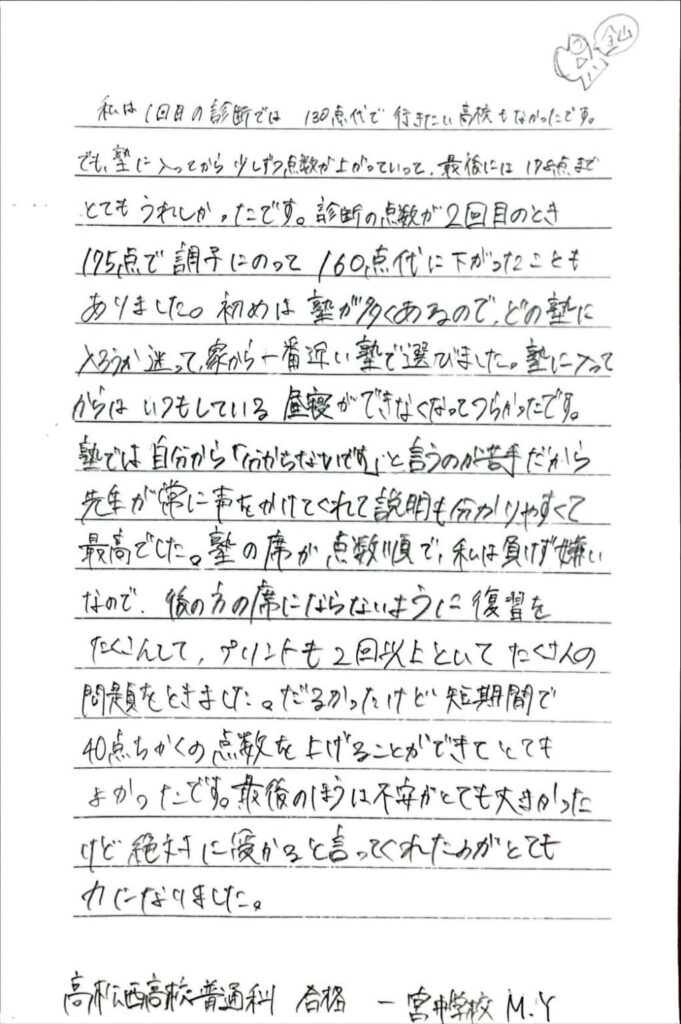 金山
私は1回目の診断では 130点代で 行きたい高校もなかったです。
でも、塾に入ってから少しずつ点数が上がっていって、最後には178点まで
とてもうれしかったです。診断の点数が2回目のとき
175点で調子にのって 160点代に下がったことも
ありました。初めは塾が多くあるので、どの塾に
入ろうか迷って、家から一番近い塾で選びました。塾に入って
からはいつもしている昼寝ができなくなってつらかったです。
塾では自分から「分からないです」と言うのが苦手だから
先生が常に声をかけてくれて説明も分かりやすくて
最高でした。塾の席が点数順で、私は負けず嫌い
なので、後の方の席にならないように復習を
たくさんして、プリントも2回以上といてたくさんの
問題をときました。だるかったけど短期間で
40点ちかくの点数を上げることができてとても
よかったです。最後のほうは不安がとても大きかった
けど絶対に受かると言ってくれたのがとても
力になりました。
高松西高校普通科 合格 一宮中学校 M.Y